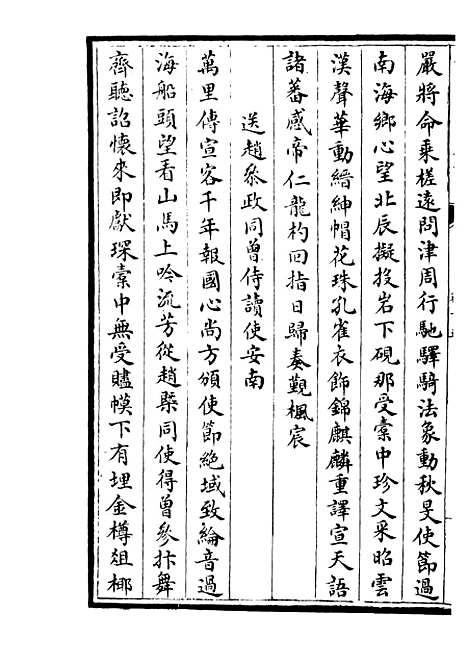 嚴將命乘槎遠問津周行馳驛騎法象動秋旻使節過
南海鄉心望北辰擬投岩下硯那受槖中珍文采昭雲
漢聲華動縉紳帽花珠孔雀衣飾錦麒麟重譯宣天語
諸蕃感帝仁龍杓回指日歸奏覲楓宸
送趙叅政同曾侍讀使安南
萬里傳宣客千年報國心尚方頒使節絶域致綸音過
海船頭望看山馬上吟流芳從趙槩同使得曾參抃舞
齊聽詔懷來即獻琛槖中無受贐幙下有埋金樽俎椰